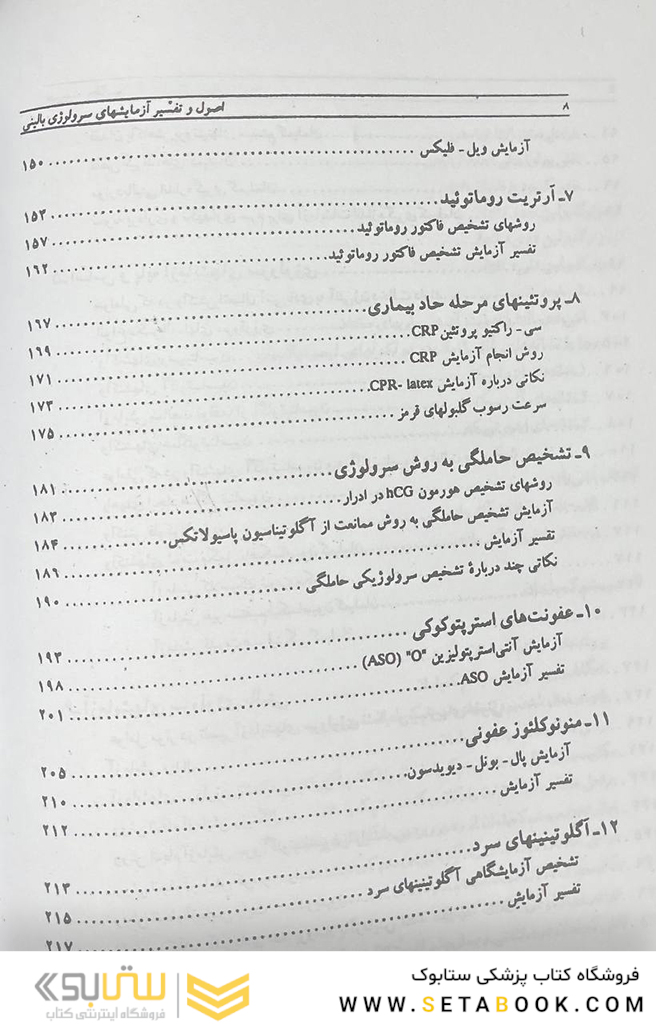 ۸ اصول و تفسیر آزمایشهای سرولوژی بالینی
آزمایش ویل - فلیکس ۱۵۰
۷ـ آرتریت روماتوئید ۱۵۳
روشهای تشخیص فاکتور روماتوئید ۱۵۷
تفسیر آزمایش تشخیص فاکتور روماتوئید ۱۶۲
۸ـ پروتئینهای مرحله حاد بیماری ۱۶۷
سی - راکتیو پروتئین CRP ۱۶۹
روش انجام آزمایش CRP ۱۷۱
نکاتی درباره آزمایش CPR- latex ۱۷۳
سرعت رسوب گلبولهای قرمز ۱۷۵
۹ـ تشخیص حاملگی به روش سرولوژی ۱۸۱
روشهای تشخیص هورمون hCG در ادرار ۱۸۳
آزمایش تشخیص حاملگی به روش ممانعت از آگلوتیناسیون پاسیولاتکس ۱۸۴
تفسیر آزمایش ۱۸۹
نکاتی چند دربارهٔ تشخیص سرولوژیکی حاملگی ۱۹۰
۱۰ـ عفونت‌های استرپتوکوکی ۱۹۳
آزمایش آنتی‌استرپتولیزین "O" (ASO) ۱۹۸
تفسیر آزمایش ASO ۲۰۱
۱۱ـ منونوکلئوز عفونی ۲۰۵
آزمایش پال - بونل - دیویدسون ۲۱۰
تفسیر آزمایش ۲۱۲
۱۲ـ آگلوتینینهای سرد ۲۱۳
تشخیص آزمایشگاهی آگلوتینینهای سرد ۲۱۵
تفسیر آزمایش ۲۱۷
فروشگاه کتاب پزشکی ستابوک
WWW.SETABOOK.COM
ستابوک
فروشگاه اینترنتی کتاب